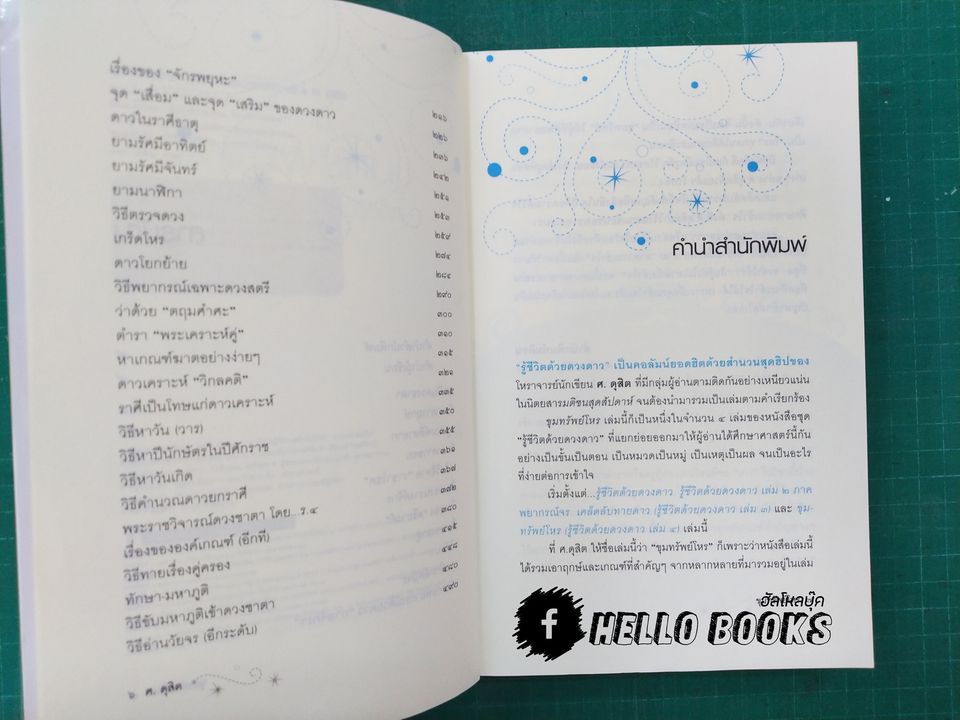 เรื่องของ "จักรพยุหะ"
จุด "เสื่อม" และจุด "เสริม" ของดวงดาว ๒๑๖
ดาวในราศีธาตุ ๒๒๖
ยามรัศมีอาทิตย์ ๒๓๖
ยามรัศมีจันทร์ ๒๔๒
ยามนาฬิกา ๒๕๑
วิธีตรวจดวง ๒๕๓
เกร็ดโหร ๒๕๙
ดาวโยกย้าย ๒๗๔
วิธีพยากรณ์เฉพาะดวงสตรี ๒๘๔
ว่าด้วย "ตฤมคำศะ" ๒๙๐
ตำรา "พระเคราะห์คู่" ๓๐๐
หาเกณฑ์ฆาตอย่างง่ายๆ ๓๑๐
ดาวเคราะห์ "วิกลคติ" ๓๑๕
ราศีเป็นโทษแก่ดาวเคราะห์ ๓๒๑
วิธีหาวัน (วาร) ๓๓๕
วิธีหาปีนักษัตรในปีศักราช ๓๕๐
วิธีหาวันเกิด ๓๕๕
วิธีคำนวณดาวยกราศี ๓๖๑
พระราชวิจารณ์ดวงชาตา โดย...ร.๔ ๓๖๗
เรื่องขององค์เกณฑ์ (อีกที) ๓๗๒
วิธีทายเรื่องคู่ครอง ๓๘๐
ทักษา-มหาภูติ ๔๑๕
วิธีขับมหาภูติเข้าดวงชาตา ๔๔๘
วิธีอ่านวัยจร (อีกระดับ) ๔๘๐
๔๙๐
๖ ศ. ดุสิต
คำนำสำนักพิมพ์
"รู้ชีวิตด้วยดวงดาว" เป็นคอลัมน์ยอดฮิตด้วยสำนวนสุดฮิปของ
โหราจารย์นักเขียน ศ. ดุสิต ที่มีกลุ่มผู้อ่านตามติดกันอย่างเหนียวแน่น
ในนิตยสารมติชนสุดสัปดาห์ จนต้องนำมารวมเป็นเล่มตามคำเรียกร้อง
ขุมทรัพย์โหร เล่มนี้ก็เป็นหนึ่งในจำนวน ๔ เล่มของหนังสือชุด
"รู้ชีวิตด้วยดวงดาว" ที่แยกย่อยออกมาให้ผู้อ่านได้ศึกษาศาสตร์นี้กัน
อย่างเป็นขั้นเป็นตอน เป็นหมวดเป็นหมู่ เป็นเหตุเป็นผล จนเป็นอะไร
ที่ง่ายต่อการเข้าใจ
เริ่มตั้งแต่...รู้ชีวิตด้วยดวงดาว รู้ชีวิตด้วยดวงดาว เล่ม ๒ ภาค
พยากรณ์จร เคล็ดลับทายดาว (รู้ชีวิตด้วยดวงดาว เล่ม ๓) และ ขุม-
ทรัพย์โหร (รู้ชีวิตด้วยดวงดาว เล่ม ๔) เล่มนี้
ที่ ศ.ดุสิต ให้ชื่อเล่มนี้ว่า "ขุมทรัพย์โหร" ก็เพราะว่าหนังสือเล่มนี้
ได้รวมเอาฤกษ์และเกณฑ์ที่สำคัญๆ จากหลากหลายที่มารวมอยู่ในเล่ม
ฮัลโหลบุ๊ค
f HELLO BOOKS